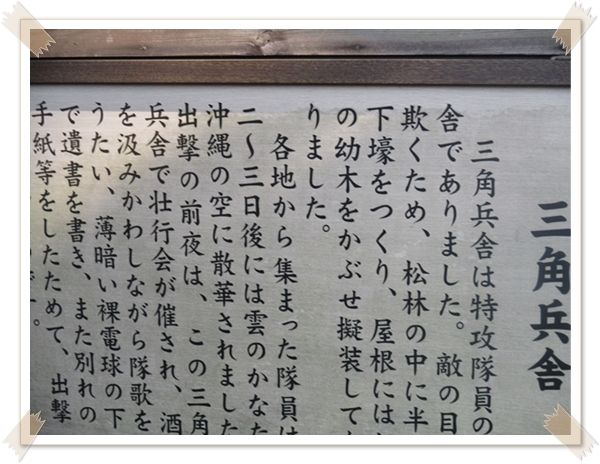 三角兵舎
三角兵舎は特攻隊員の
舎でありました。敵の目
欺くため、松林の中に半
下壕をつくり、屋根には
の幼木をかぶせ擬装して
りました。
各地から集まった隊員は
二～三日後には雲のかなた
沖縄の空に散華されました
出撃の前夜は、この三角
兵舎で壮行会が催され、酒
を汲みかわしながら隊歌を
うたい、薄暗い裸電球の下
で遺書を書き、また別れの
手紙等をしたためて、出撃